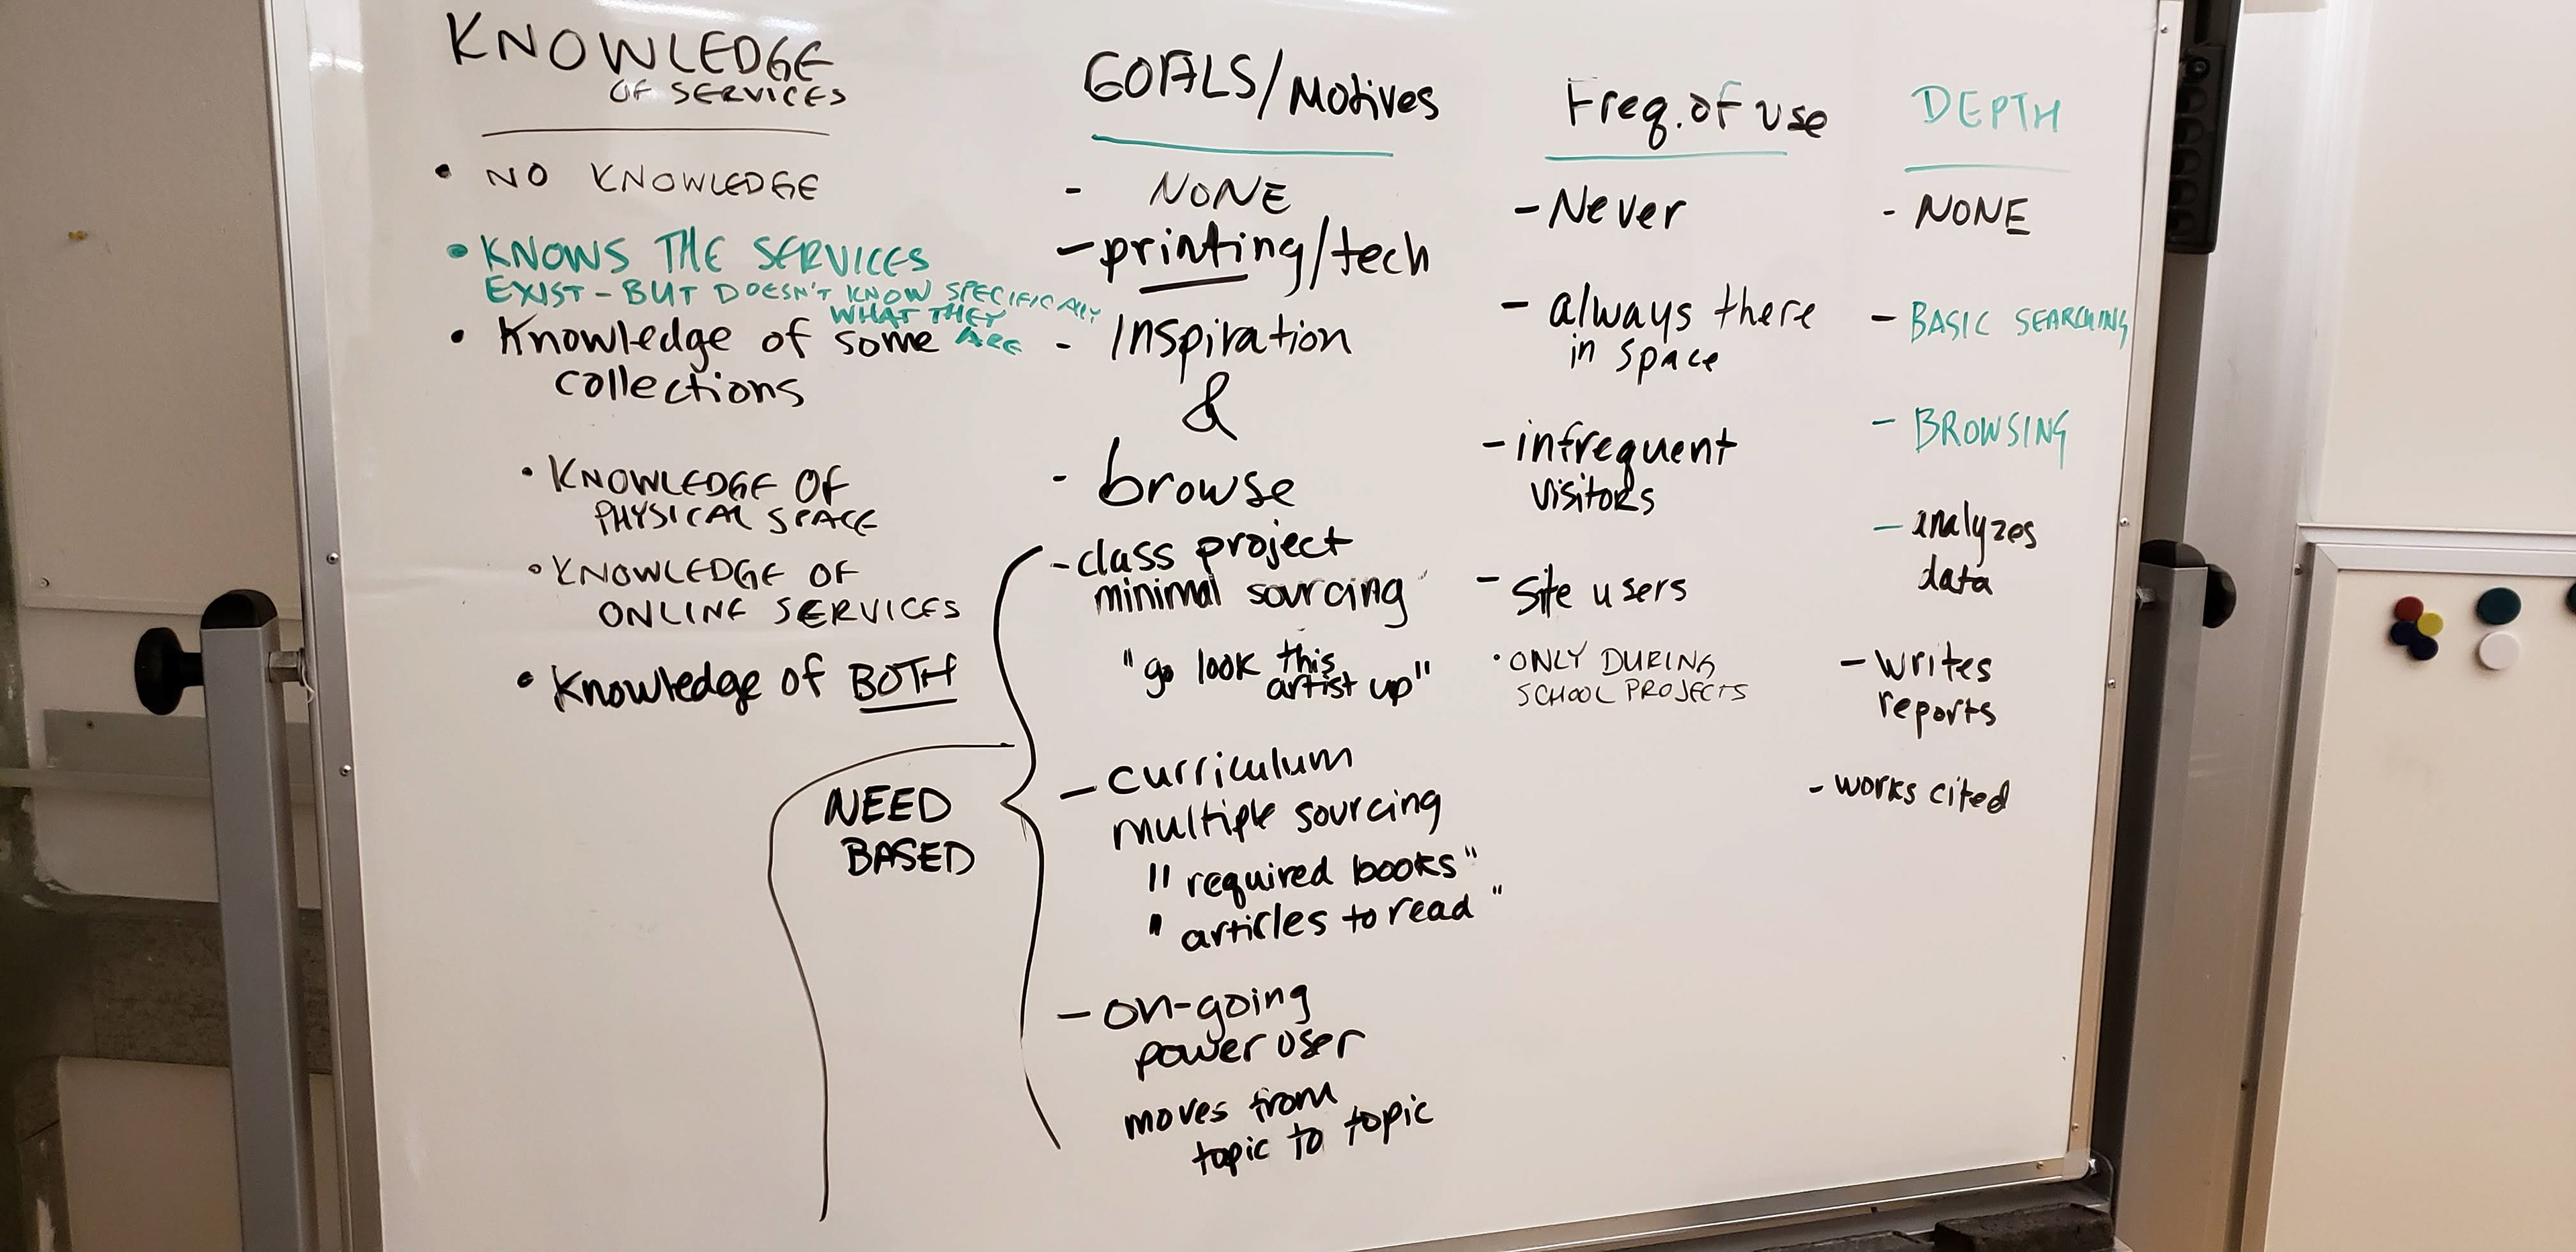 KNOWLEDGE
OF SERVICES
• NO KNOWLEDGE
• KNOWS THE SERVICES
EXIST - BUT DOESN'T KNOW SPECIFICALLY
WHAT THEY
ARE
• Knowledge of some
collections
• KNOWLEDGE OF
PHYSICAL SPACE
• KNOWLEDGE OF
ONLINE SERVICES
• Knowledge of BOTH
NEED
BASED
GOALS/Motives
- NONE
- printing/tech
- Inspiration
&
- browse
- class project
minimal sourcing
"go look this
artist up"
- curriculum
multiple sourcing
"required books"
"articles to read"
- on-going
power user
moves from
topic to topic
Freq. of use
- Never
- always there
in space
- infrequent
visitors
- Site users
• ONLY DURING
SCHOOL PROJECTS
DEPTH
- NONE
- BASIC SEARCHING
- BROWSING
- analyzes
data
- writes
reports
- works cited